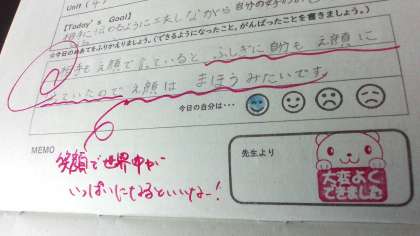 Unit (
[Today's Goal]
相手に伝わるように工夫しながら 自分の
☆今日のめあてをふりかえりましょう。(できるようになったこと、がんばったことを書きましょう。)
相手も え顔で 言っていると ふしぎに 自分も え顔に
なっていたので え顔は まほうみたいです。
今日の自分は・・・
MEMO
笑顔で世界中が
いっぱいになるといいなー!
先生より
大変よく
できました